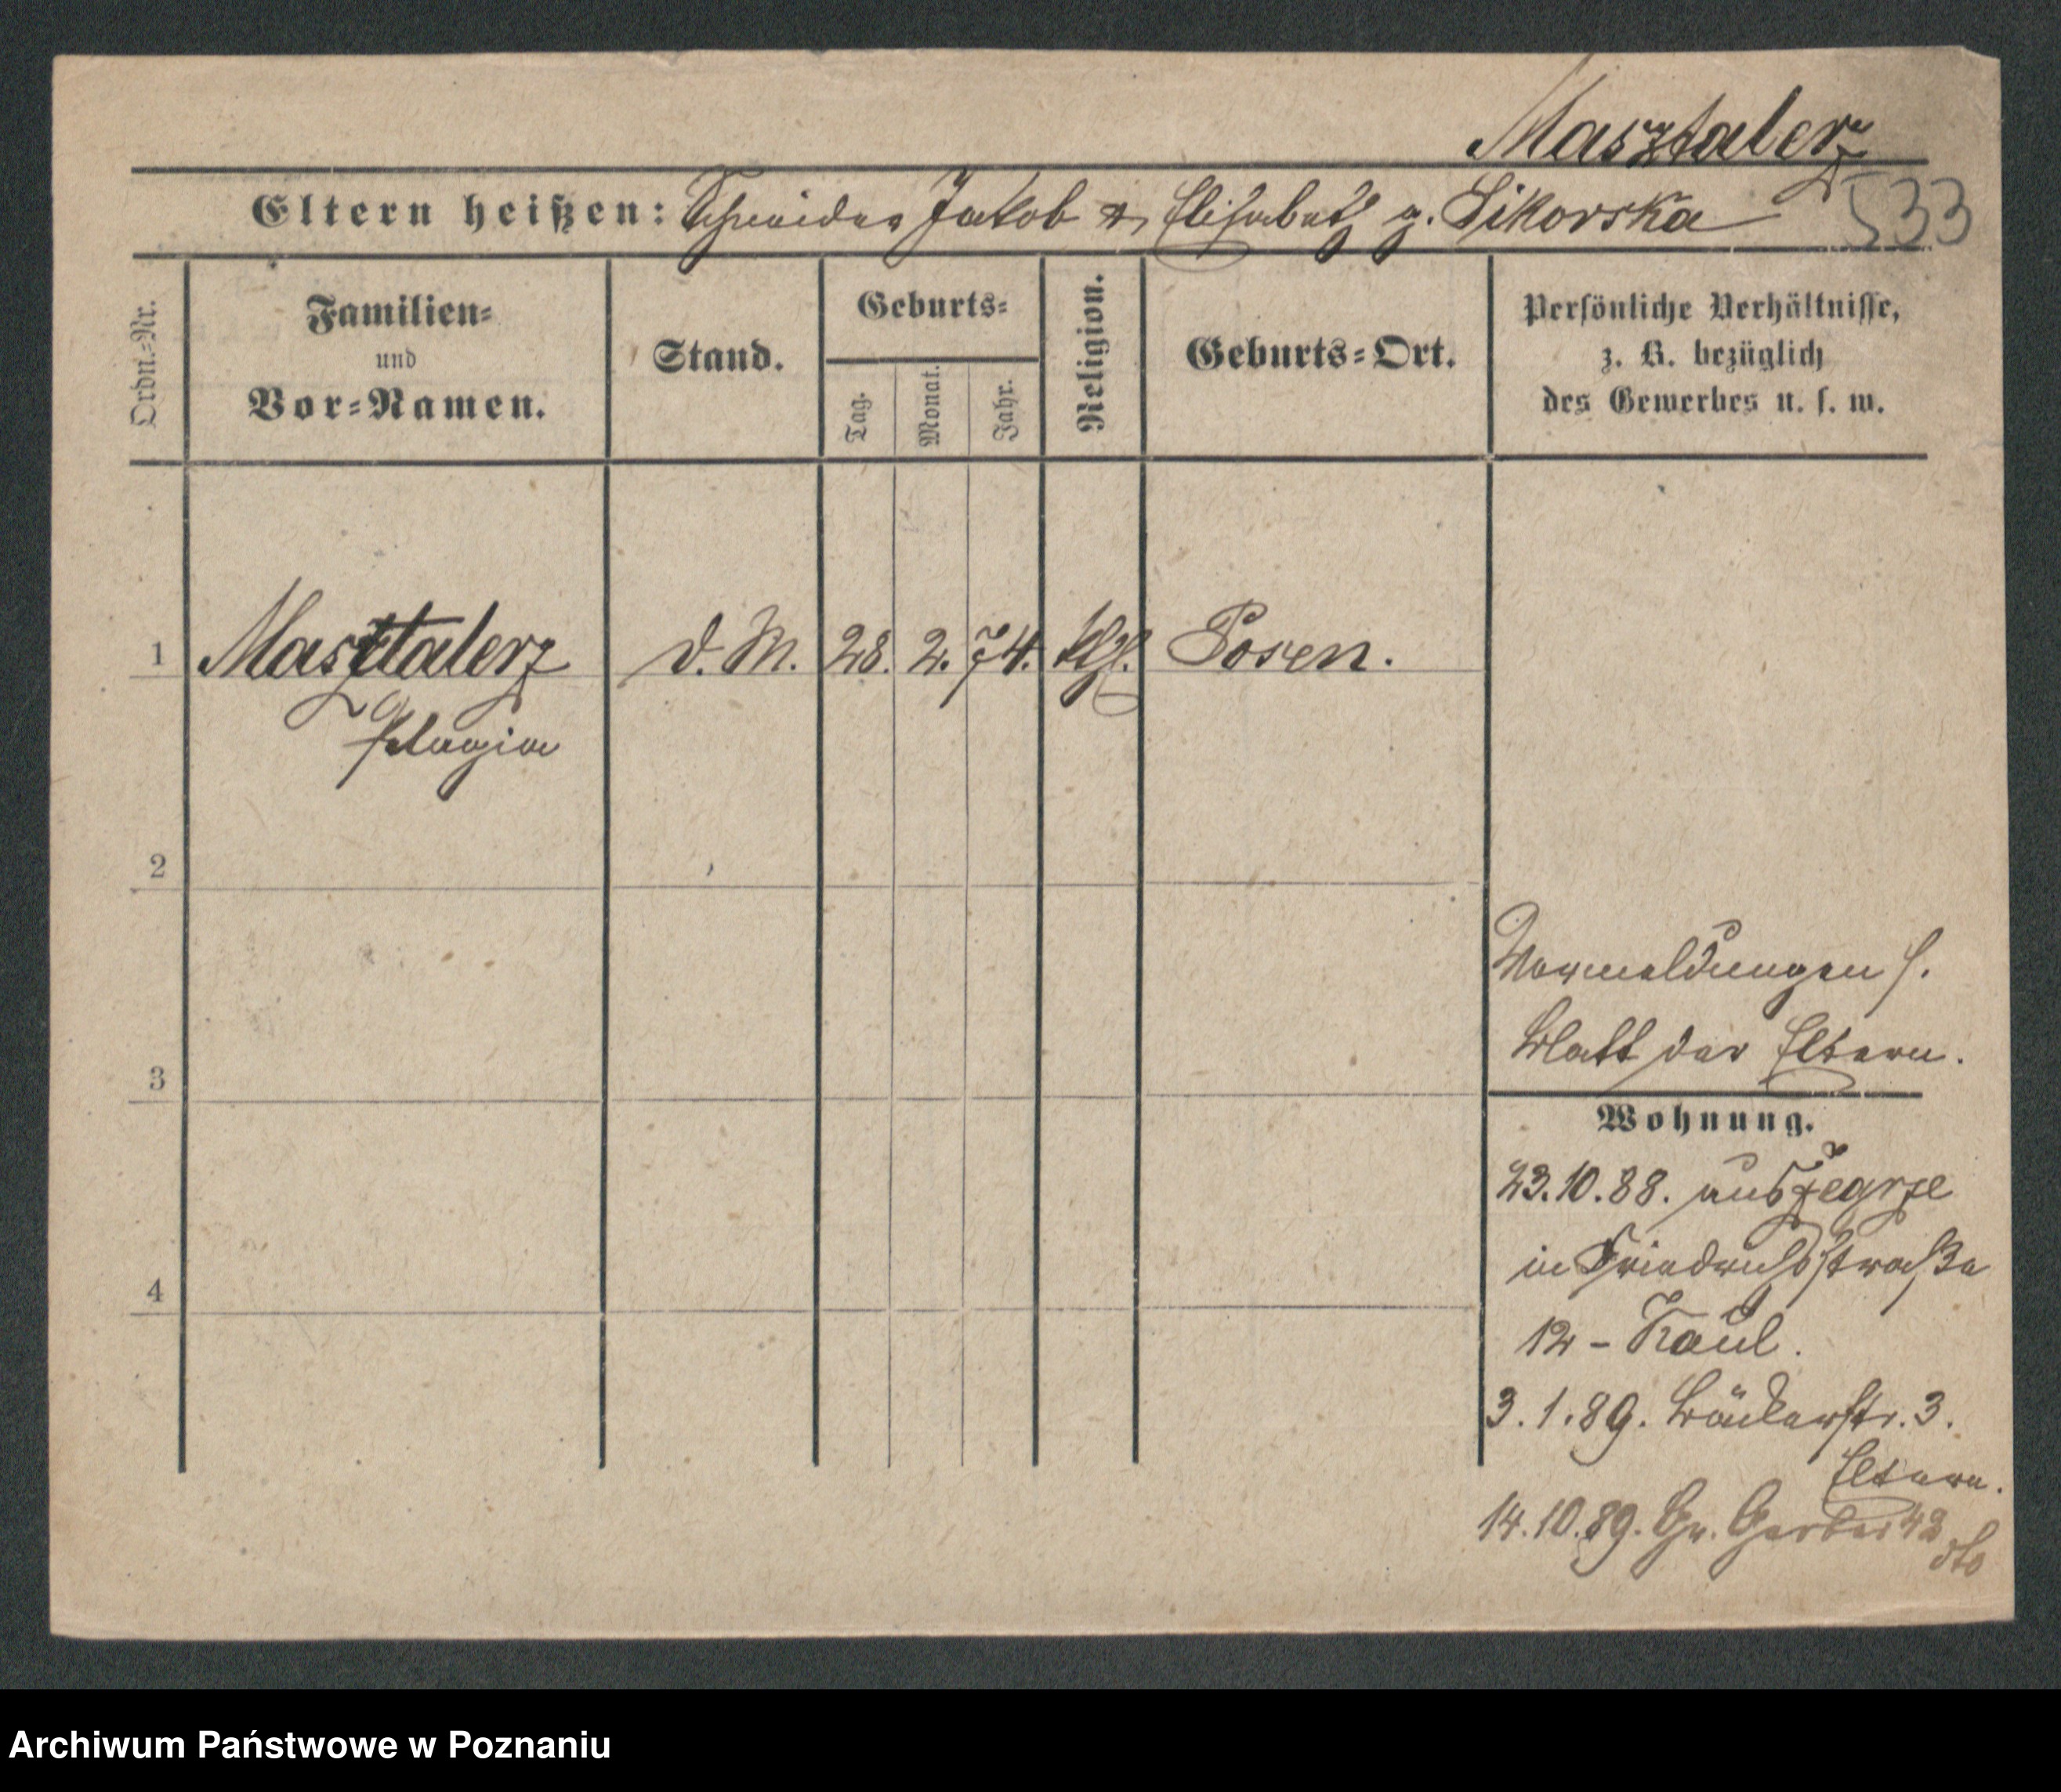 Masztalerz
533
Eltern heißen: Schneider Jakob & Elisabeth g. Sikorska
Ordn.-Nr.
Familien-
und
Vor-Namen.
Stand.
Geburts-
Tag.
Monat.
Jahr.
Religion.
Geburts-Ort.
Persönliche Verhältnisse,
z. B. bezüglich
des Gewerbes u. s. w.
1 Masztalerz d. M. 28. 2. 74. kth. Posen.
Pelagia
2
3
4
Vormeldungen s.
Blatt der Eltern.
Wohnung.
23.10.88. aus Zegrze
in Friedrichsstraße
12 - Kaul.
3.1.89. Bäckerstr. 3.
Eltern.
14.10.89. Gr. Gerber 42
dto
Archiwum Państwowe w Poznaniu